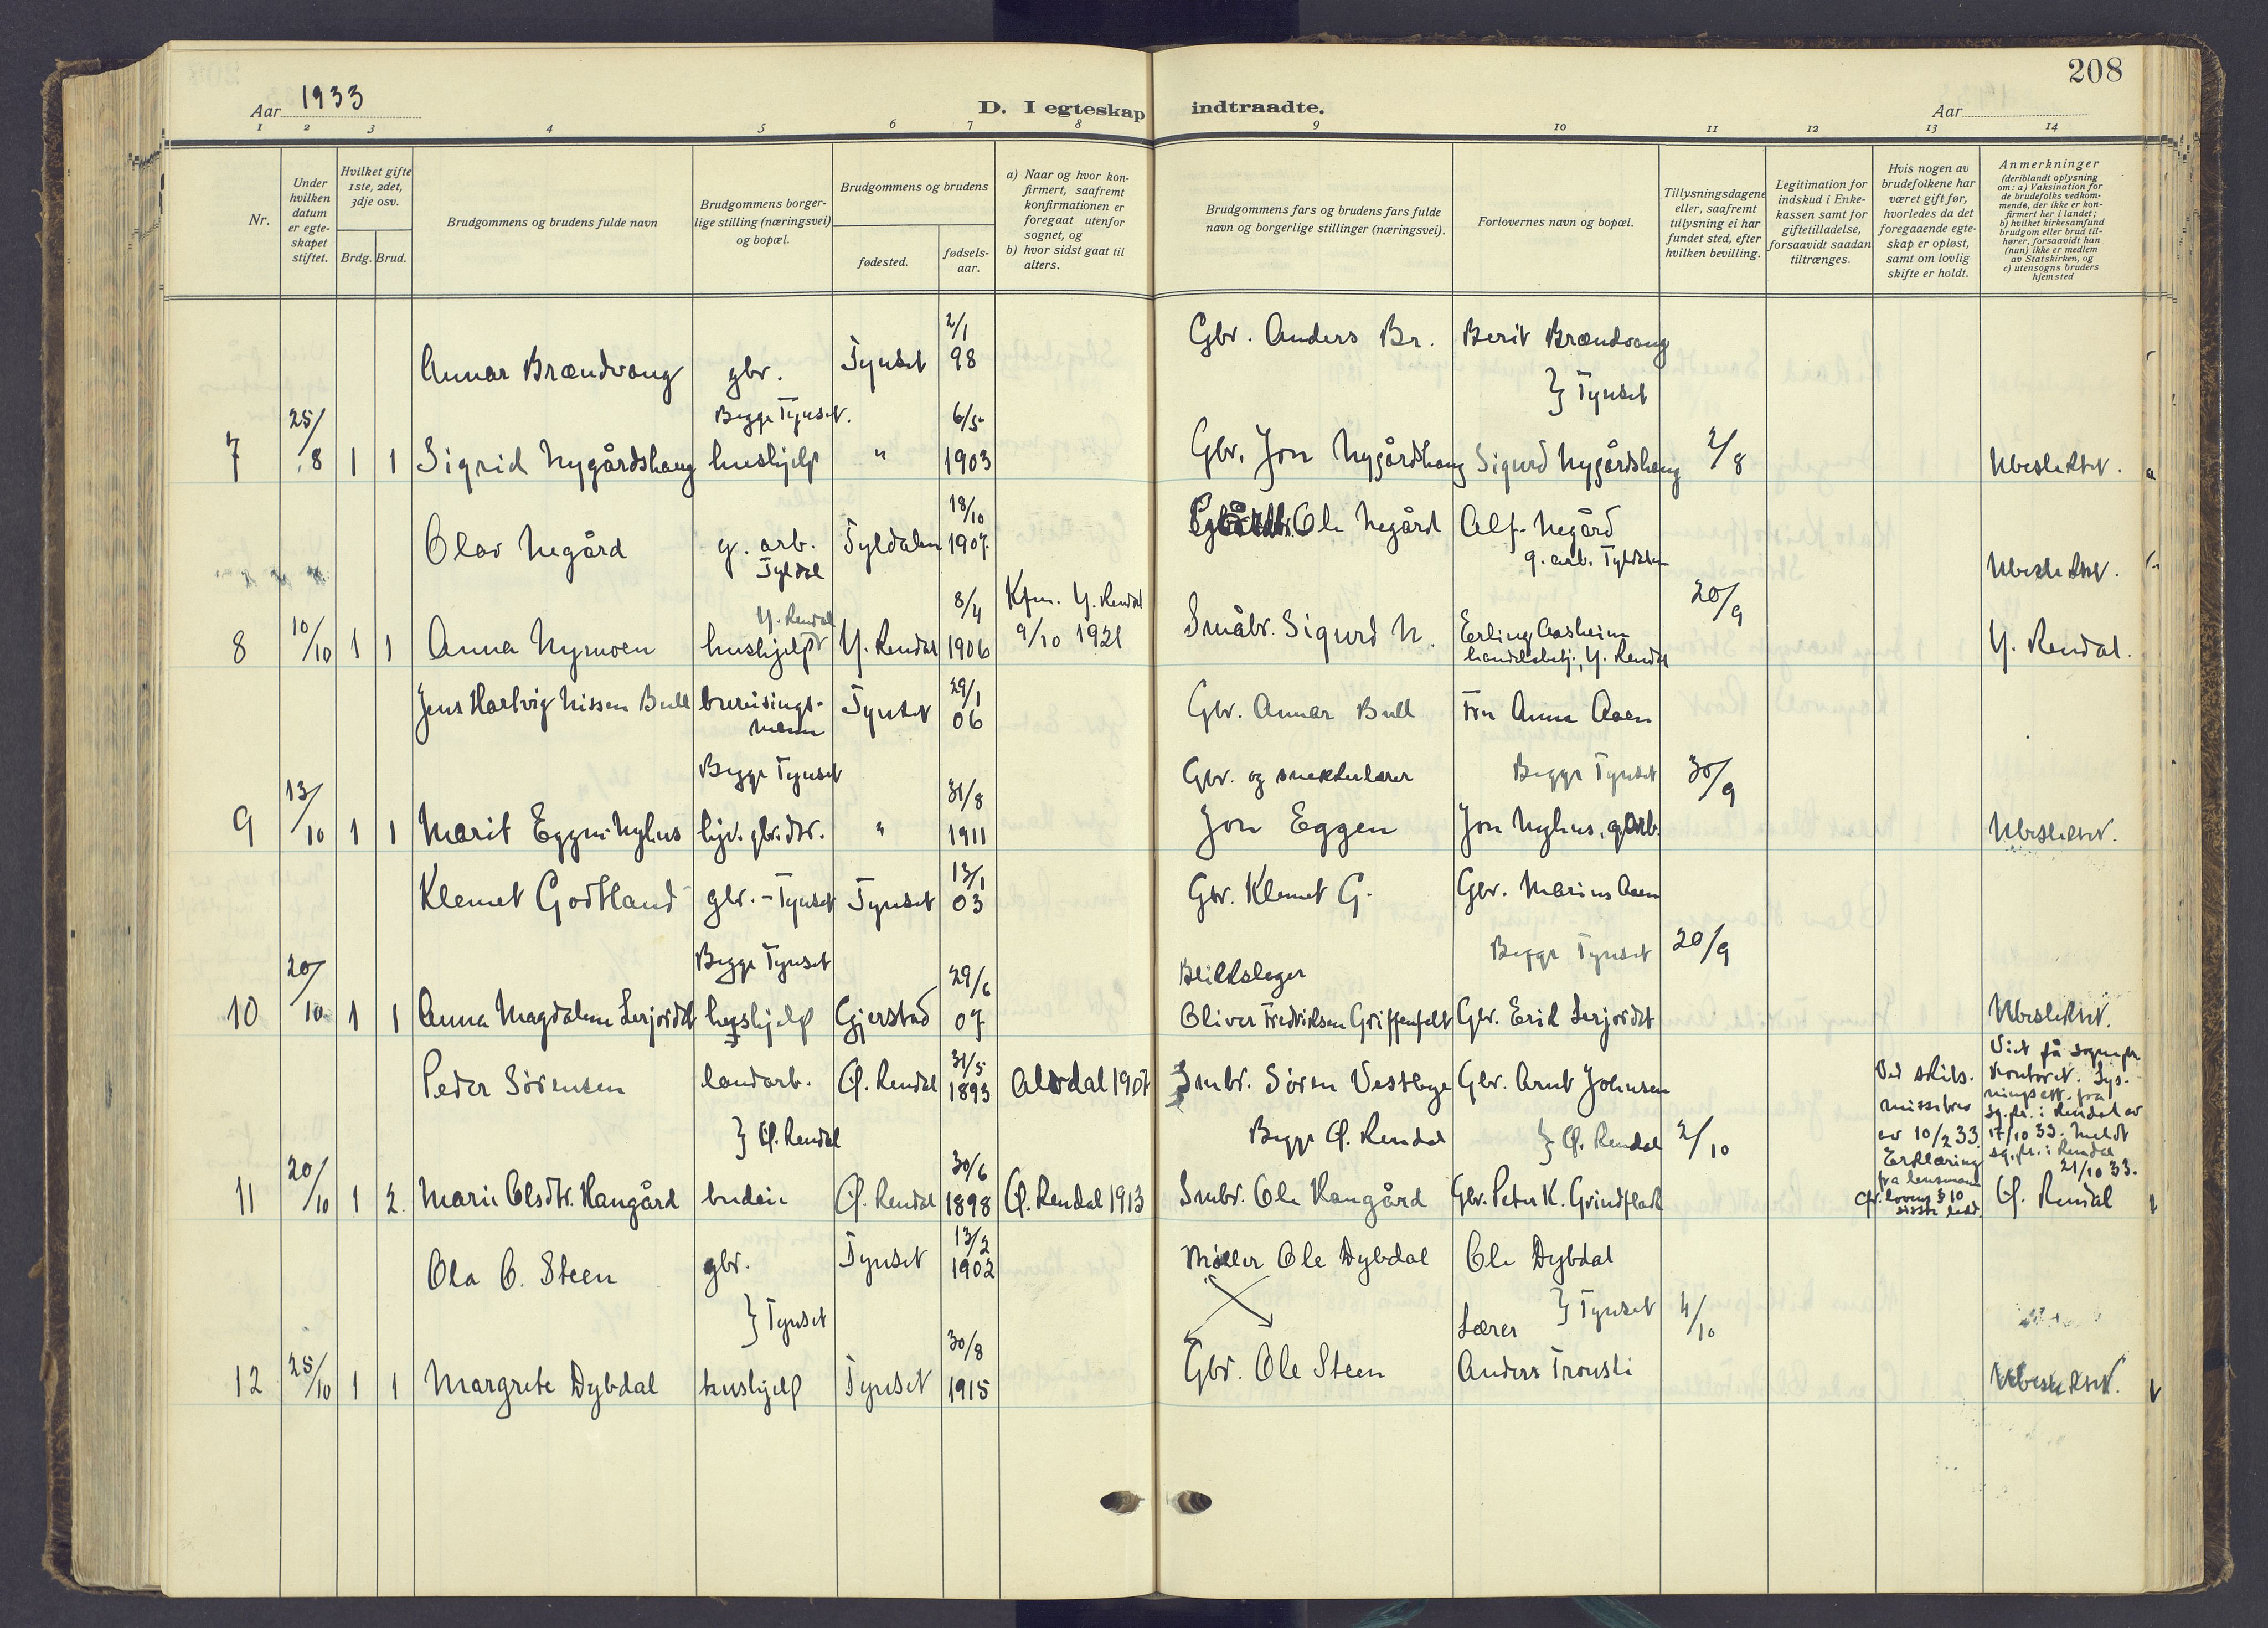 208
Aar 1933
D. I egteskap indtraadte.
Aar
1 2 3 4 5 6 7 8 9 10 11 12 13 14
Nr.
Under hvilken datum er egte-skapet stiftet.
Hvilket gifte 1ste, 2det, 3dje osv.
Brdg. Brud.
Brudgommens og brudens fulde navn
Brudgommens borger-lige stilling (næringsvei) og bopæl.
Brudgommens og brudens
fødested.
fødsels-aar.
a) Naar og hvor kon-firmert, saafremt konfirmationen er foregaat utenfor sognet, og
b) hvor sidst gaat til alters.
Brudgommens fars og brudens fars fulde navn og borgerlige stillinger (næringsvei).
Forlovernes navn og bopæl.
Tillysningsdagene eller, saafremt tillysning ei har fundet sted, efter hvilken bevilling.
Legitimation for indskud i Enke-kassen samt for giftetilladelse, forsaavidt saadan tiltrænges.
Hvis nogen av brudefolkene har været gift før, hvorledes da det foregaaende egte-skap er opløst, samt om lovlig skifte er holdt.
Anmerkninger (deriblandt oplysning om: a) Vaksination for de brudefolks vedkom-mende, der ikke er kon-firmert her i landet; b) hvilket kirkesamfund brudgom eller brud til-hører, forsaavidt han (hun) ikke er medlem av Statskirken, og c) utensogns bruders hjemsted
2/1
Annar Brændvang gbr. Tynset 98 Gbr. Anders Br. Berit Brændvang
} Tynset
25/8 Begge Tynset. 6/5
7 1 1 Sigrid Nygårdshaug hushjelp " 1903 Gbr. Jon Nygårdshaug Sigurd Nygårdshaug 2/8 Ubeslektet.
18/10
Olav Negård g. arb. Tyldalen 1907 Ole Negård Alf Negård
Tyldal g. arb. Tyldalen Ubeslektet.
Y. Rendal 8/4 Kfm. Y. Rendal 20/9
8 10/10 1 1 Anna Nymoen hushjelp Y. Rendal 1906 9/10 1921 Småbr. Sigurd N. Erling Aasheim
handelsbetj., Y. Rendal Y. Rendal.
29/1
Jens Hartvig Nissen Bull bureisings-mann Tynset 06 Gbr. Annar Bull Fru Anna Aaen
Begge Tynset Gbr. og snekkerlærer Begge Tynset 30/9
13/10 31/8
9 1 1 Marit Eggen Nyhus hjv. gbr.dtr. " 1911 Jon Eggen Jon Nyhus, g.arb. Ubeslektet.
13/1
Klemet Godtland gbr. - Tynset Tynset 03 Gbr. Klemet G. Gbr. Marius Aaen
Begge Tynset Begge Tynset 20/9
20/10 29/6 Blikkslager
10 1 1 Anna Magdalene Lerjordet hushjelp Gjerstad 07 Oliver Fredriksen Griffenfelt Gbr. Erik Lerjordet Ubeslektet.
31/5
Peder Sörensen landarb. Ø. Rendal 1893 Alvdal 1907 Smbr. Sören Vestbye Gbr. Arnt Johnsen
} Ø. Rendal Begge Ø. Rendal } Ø. Rendal 2/10
Ved skils-missebrev av 10/2 33. Erklæring fra lensmann cfr. lovens § 10 siste ledd.
Viet på sognepr. kontoret. Lys-ningsatt. fra sg.pr. i Rendal av 17/10 33. Meldt sg.pr. i Rendal 21/10 33.
20/10 30/6
11 1 2. Marie Olsdtr. Haugård budeie Ø. Rendal 1898 Ø. Rendal 1913 Smbr. Ole Haugård Gbr. Peter K. Grindflek Ø. Rendal
13/2
Ola O. Steen gbr. Tynset 1902 Møller Ole Dybdal Ole Dybdal
} Tynset } Tynset 4/10
30/8 Lærer
12 25/10 1 1 Margrete Dybdal hushjelp Tynset 1915 Gbr. Ole Steen Anders Tronsli Ubeslektet.